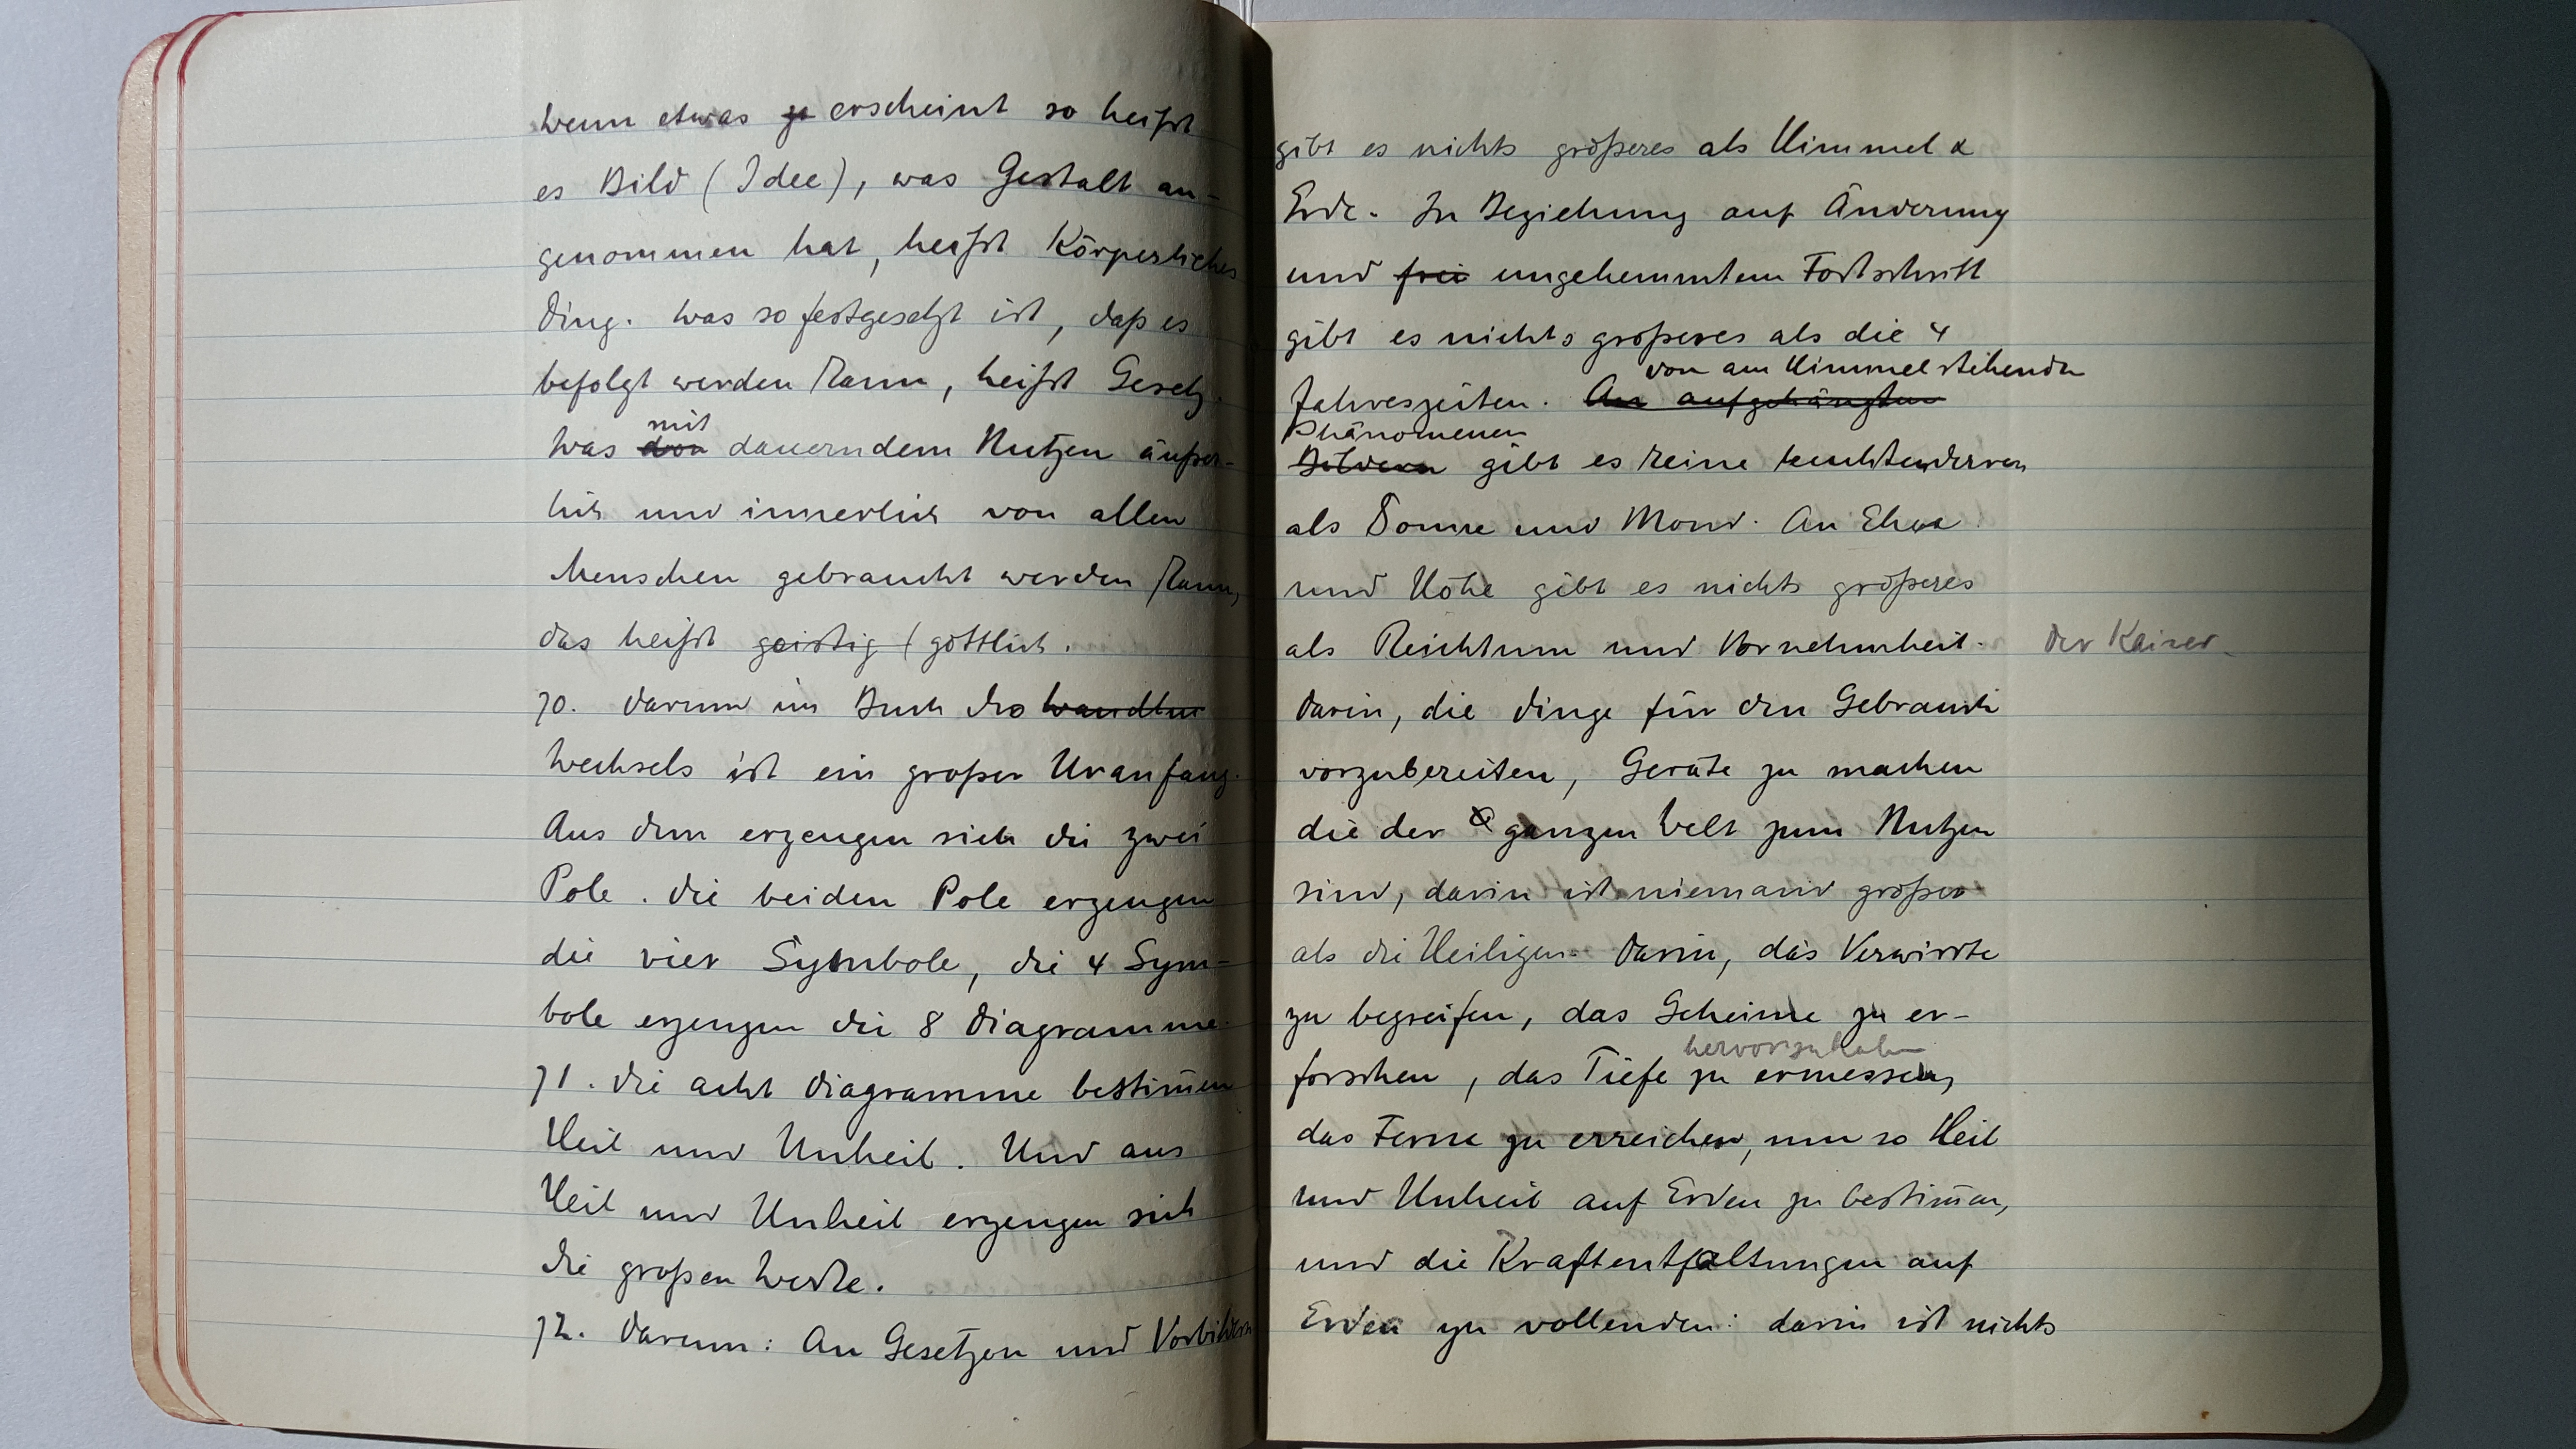 wenn etwas erscheint so heißt
es Bild (Idee), was Gestalt an-
genommen hat, heißt Körperliches
Ding. Was so festgesetzt ist, daß es
befolgt werden kann, heißt Gesetz.
mit
Was von dauerndem Nutzen äußer-
lich und innerlich von allen
Menschen gebraucht werden kann,
das heißt geistig (göttlich.
70. Darum im Buch des Wandlun
Wechsels ist ein großer Uranfang.
Aus dem erzeugen sich die zwei
Pole. Die beiden Pole erzeugen
die vier Symbole, die 4 Sym-
bole erzeugen die 8 Diagramme.
71. Die acht Diagramme bestim̄en
Heil und Unheil. Und aus
Heil und Unheil erzeugen sich
die großen Werke.
72. Darum: An Gesetzen und Vorbildern
gibt es nichts größeres als Himmel &
Erde. In Beziehung auf Änderung
und frei ungehemmtem Fortschritt
gibt es nichts größeres als die 4
von am Himmel stehenden
Jahreszeiten. An aufgehängten
Phänomenen
Bildern gibt es keine leuchtenderen
als Sonne und Mond. An Ehre
und Höhe gibt es nichts größeres
als Reichtum und Vornehmheit. Der Kaiser
Darin, die Dinge für den Gebrauch
vorzubereiten, Geräte zu machen
die der ganzen Welt zum Nutzen
sind, darin ist niemand größer
als die Heiligen. Darin, das Verwirrte
zu begreifen, das Geheime zu er-
hervorzuholen
forschen, das Tiefe zu ermessen,
das Ferne zu erreichen, um so Heil
und Unheil auf Erden zu bestim̄en,
und die Kraftentfaltungen auf
Erden zu vollenden: darin ist nichts